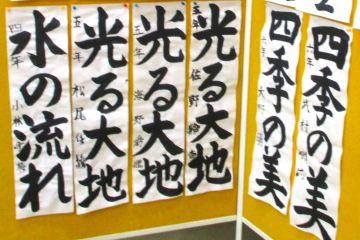 四季の美
六年
四季の美
六年
光る大地
五年 佐野
光る大地
五年
光る大地
五年 松尾
水の流れ
四年 小林